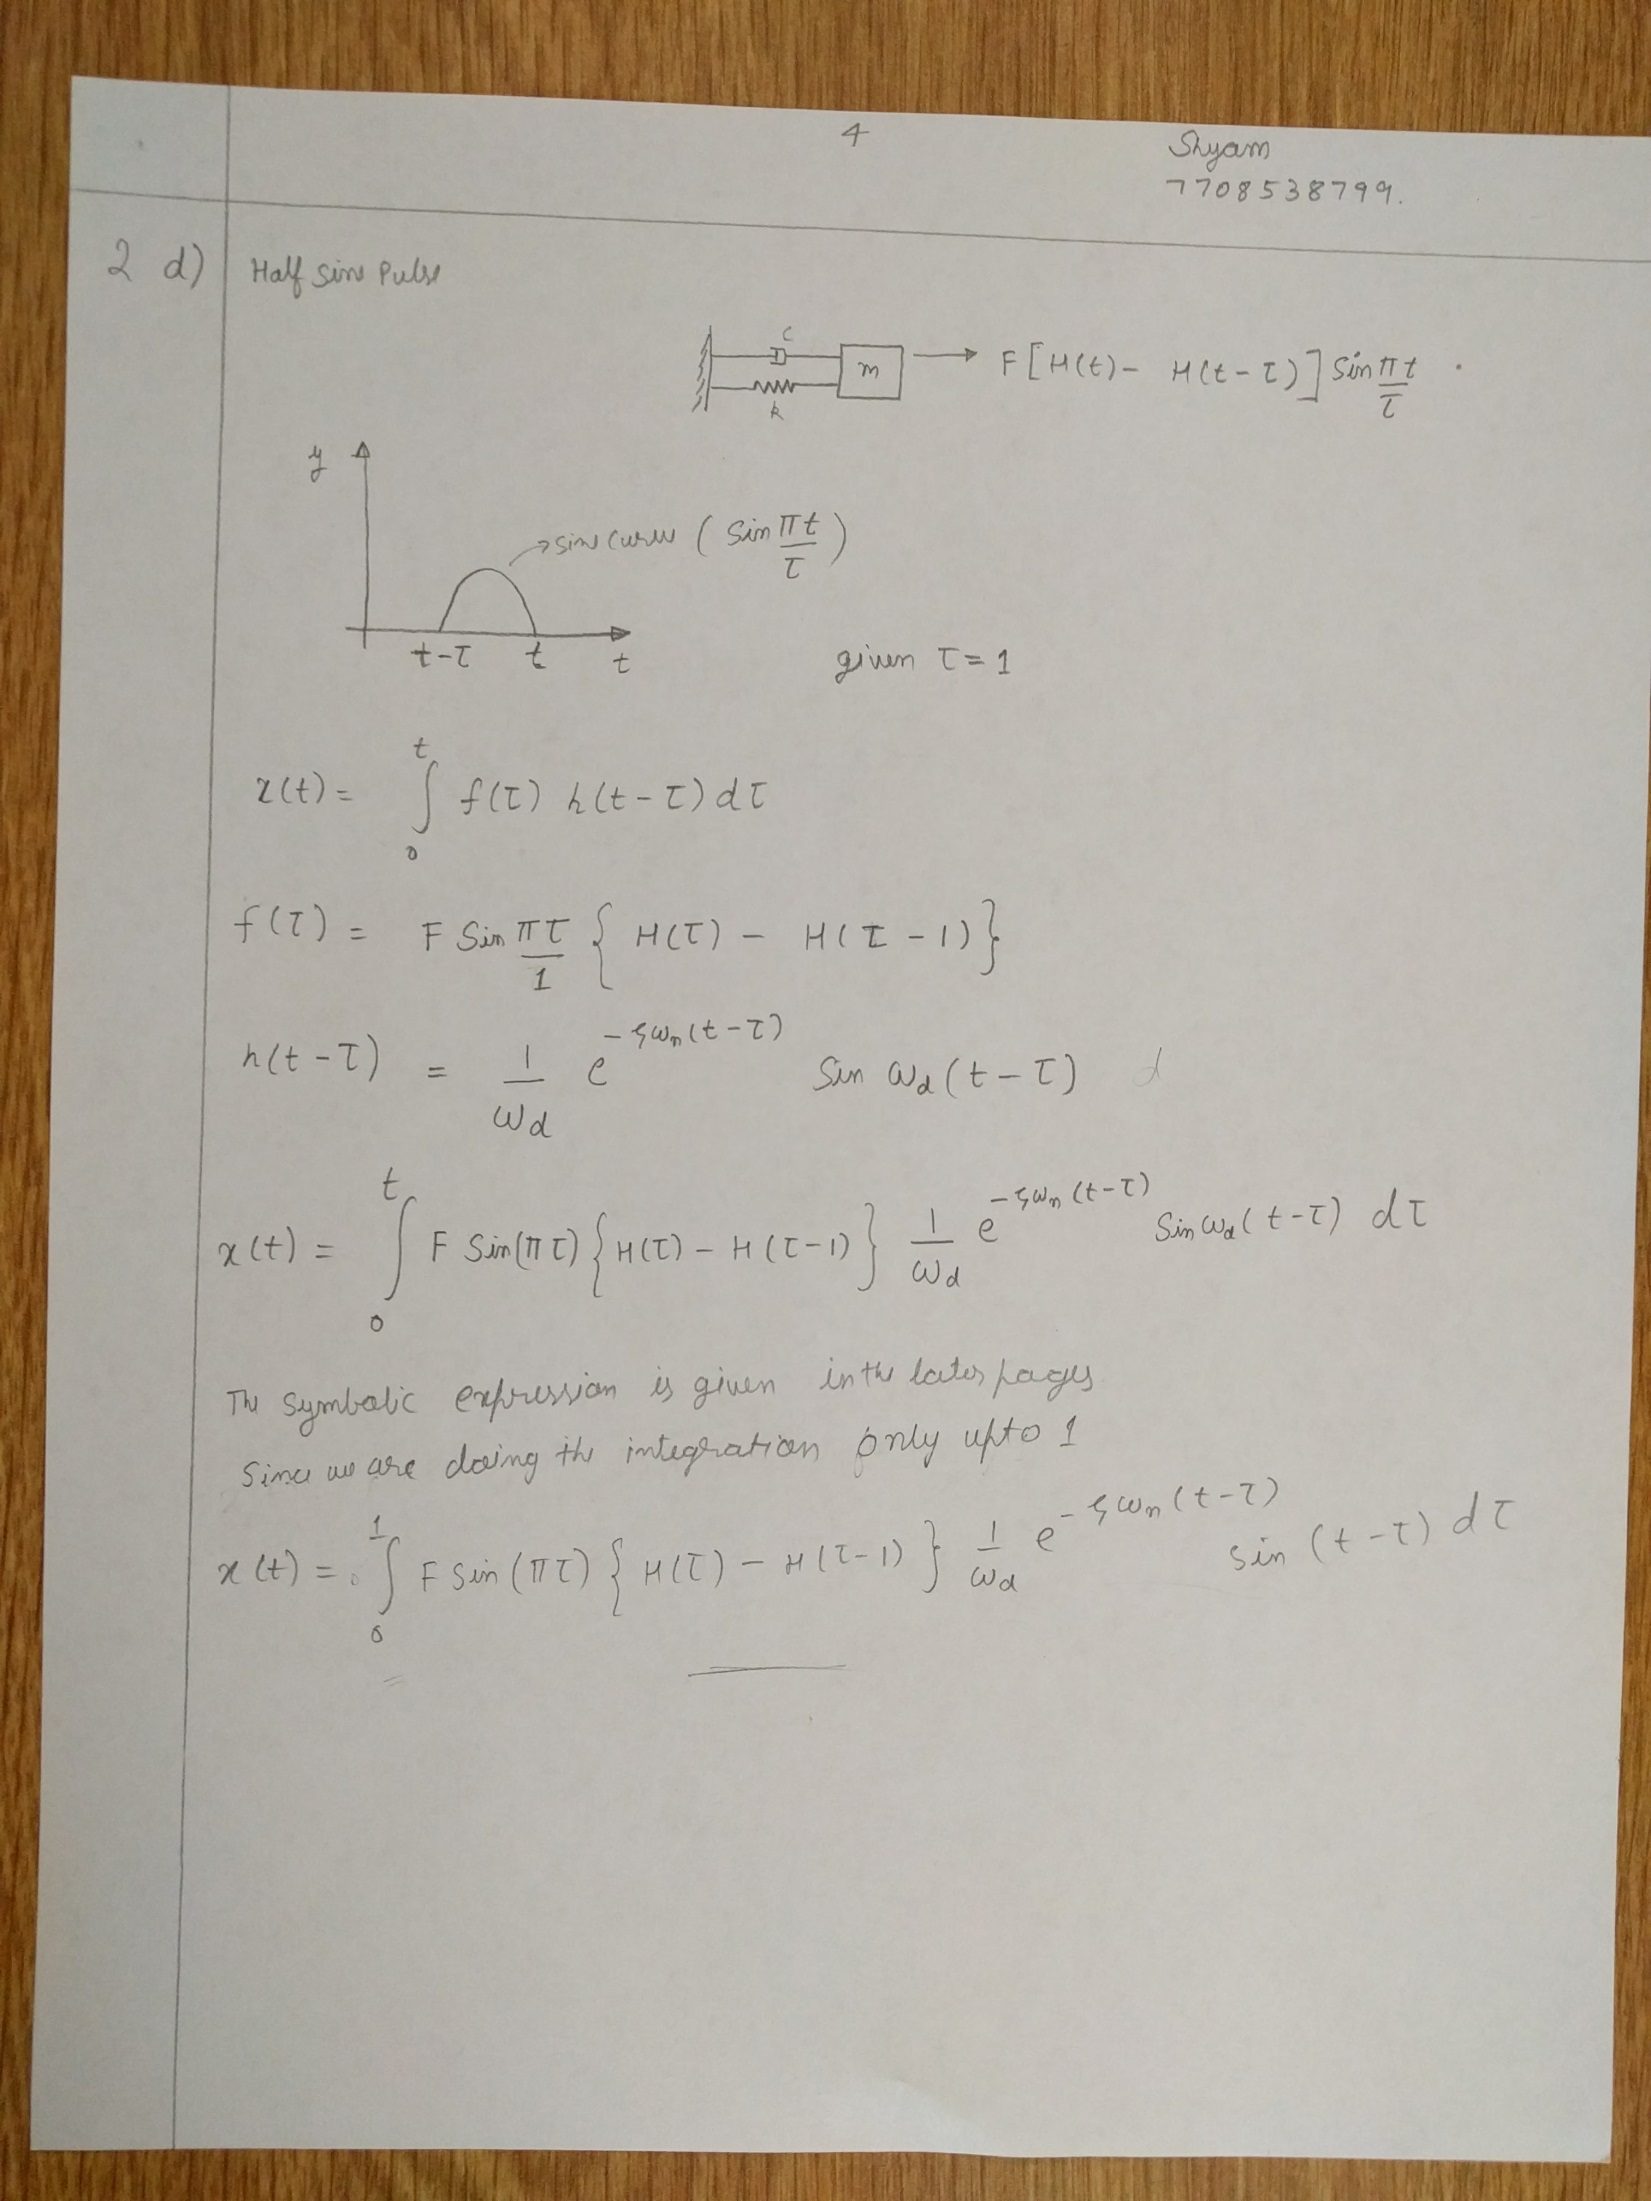 4
Shyam
7708538799.
2 d) Half Sine Pulse
c
m → F[H(t) - H(t-τ)] Sin πt/τ
k
y
→ sine curve (Sin πt/τ)
t-τ t t
given τ = 1
x(t) = ∫₀ᵗ f(τ) h(t-τ) dτ
f(τ) = F Sin πτ/1 { H(τ) - H(τ-1) }
h(t-τ) = 1/ωd e^(-ζωn(t-τ)) Sin ωd(t-τ) d
x(t) = ∫₀ᵗ F Sin(πτ) { H(τ) - H(τ-1) } 1/ωd e^(-ζωn(t-τ)) Sin ωd(t-τ) dτ
The symbolic expression is given in the later pages
Since we are doing the integration only upto 1
x(t) = ∫₀¹ F Sin(πτ) { H(τ) - H(τ-1) } 1/ωd e^(-ζωn(t-τ)) sin (t-τ) dτ